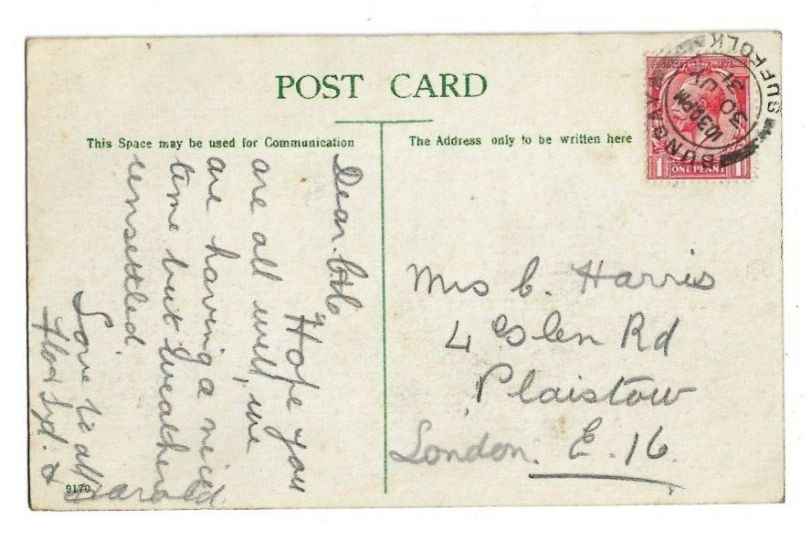 POST CARD
This Space may be used for Communication
The Address only to be written here
BUNGAY SUFFOLK
10.30 PM
30 JY
31
1 ONE PENNY 1
Dear
Hope you
are all well, we
are having a nice
time but weather
unsettled.
Love to all
Syd. &
Harold
Mrs C. Harris
4 Glen Rd
Plaistow
London. E. 16.
9170